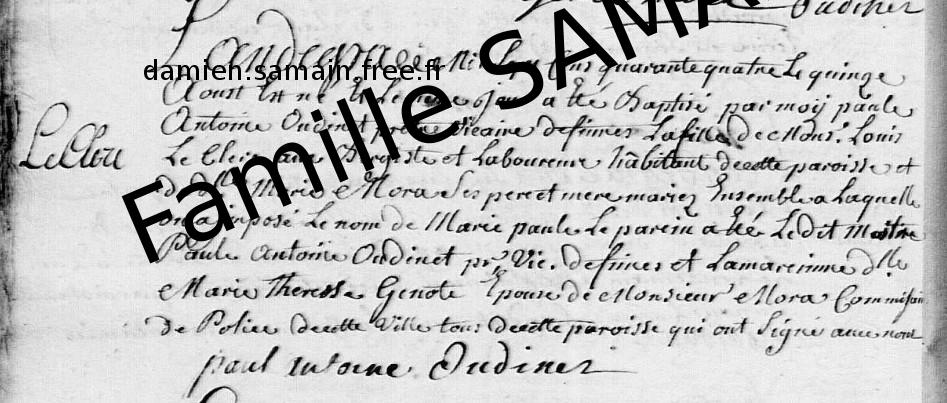 Oudinet
L'an de grace mil sept cens quarante quatre Le quinze
Aoust Est né et Le meme jour a Eté Baptisé par moy paule
Antoine Oudinet pretre vicaire de fimes La fille de Mons.r Louis
Le Clerc et Laboureur habitant de cette paroisse et
LeClerc
de d.lle Marie Mora Ses pere et mere mariez Ensemble a Laquelle
on a imposé Le nom de Marie paule Le parein a Eté Le Dit Maitre
Paule Antoine Oudinet p.r Vic. de fimes et La mareinne d.lle
Marie Theresse Genote Epouse de Monsieur Mora Commissai
de Police de cette Ville tous de cette paroisse qui ont Signé avec nous
paul antoine Oudinet
damien.samain.free.fr
Famille SAMA